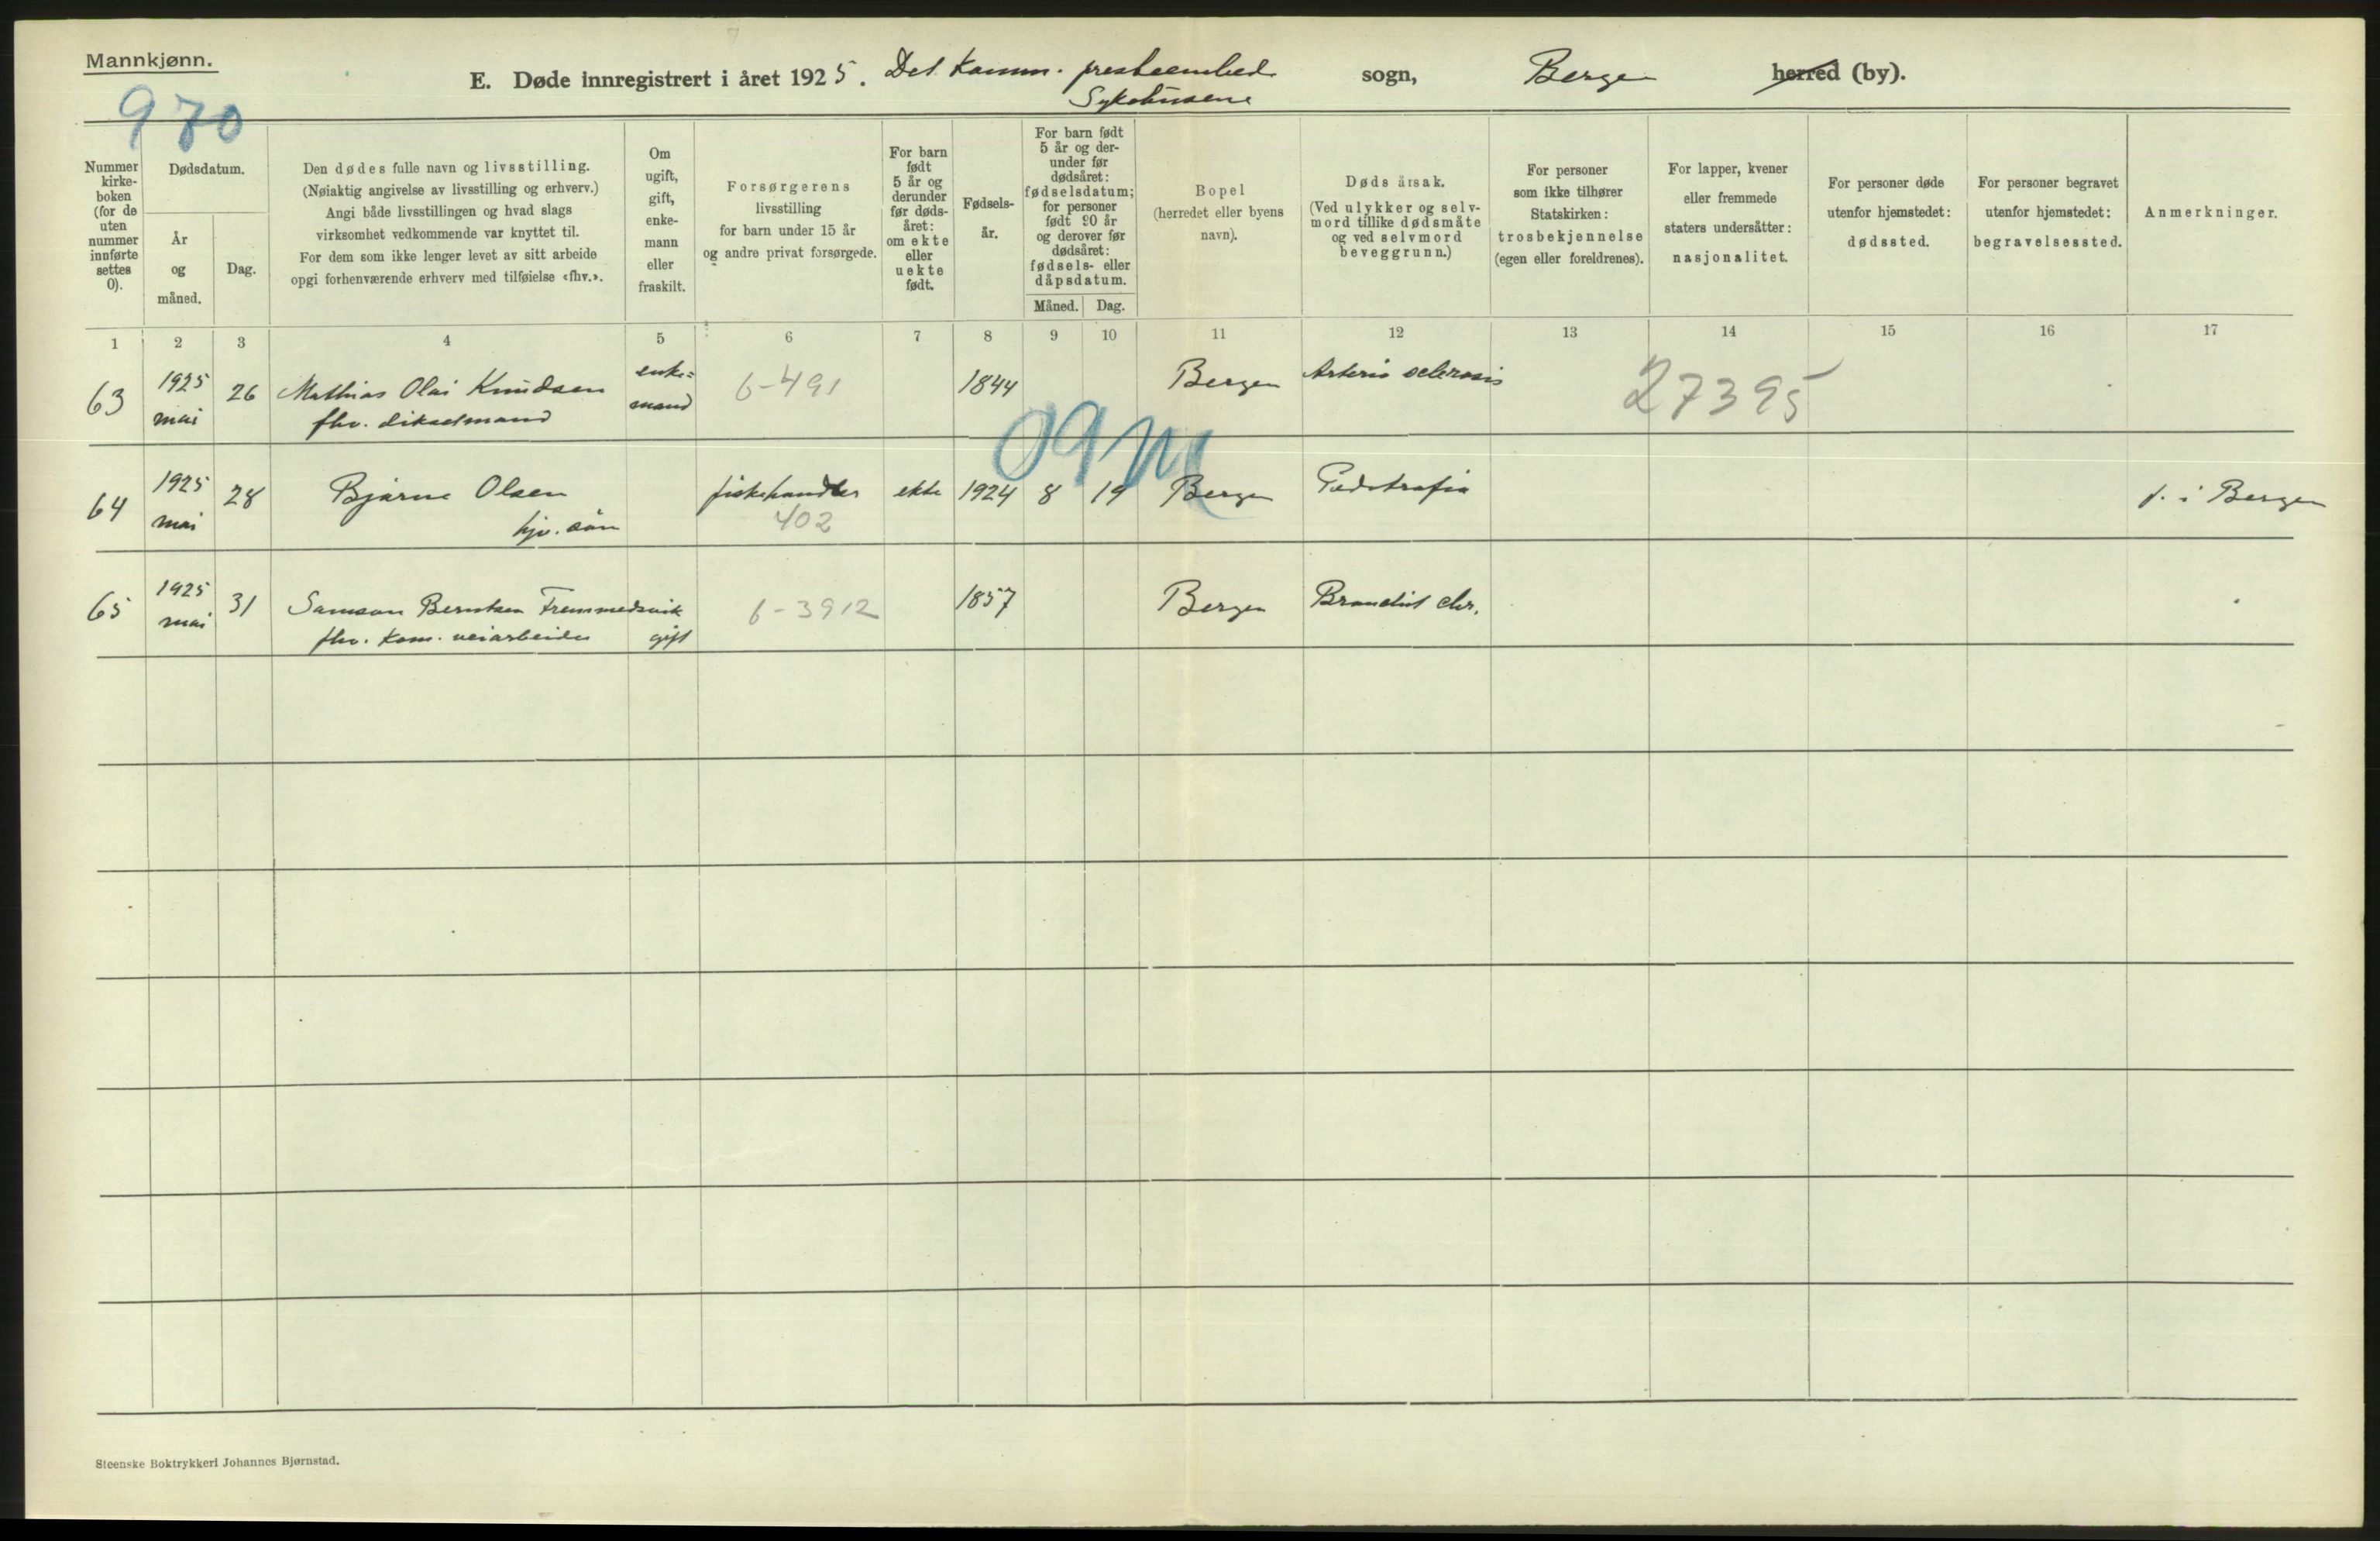 Mannkjønn.
E. Døde innregistrert i året 1925. Det komm. presteembed sogn, Bergen herred (by).
Sykehusene
970
Nummer
kirke-
boken
(for de
uten
nummer
innførte
settes
0).
Dødsdatum.
År
og
måned.
Dag.
Den dødes fulle navn og livsstilling.
(Nøiaktig angivelse av livsstilling og erhverv.)
Angi både livsstillingen og hvad slags
virksomhet vedkommende var knyttet til.
For dem som ikke lenger levet av sitt arbeide
opgi forhenværende erhverv med tilføielse «fhv.».
Om
ugift,
gift,
enke-
mann
eller
fraskilt.
Forsørgerens
livsstilling
for barn under 15 år
og andre privat forsørgede.
For barn
født
5 år og
derunder
før døds-
året:
om ekte
eller
uekte
født.
Fødsels-
år.
For barn født
5 år og der-
under før
dødsåret:
fødselsdatum;
for personer
født 90 år
og derover før
dødsåret:
fødsels- eller
dåpsdatum.
Måned. Dag.
Bopel
(herredet eller byens
navn).
Dødsårsak.
(Ved ulykker og selv-
mord tillike dødsmåte
og ved selvmord
beveggrunn.)
For personer
som ikke tilhører
Statskirken:
trosbekjennelse
(egen eller foreldrenes).
For lapper, kvener
eller fremmede
staters undersåtter:
nasjonalitet.
For personer døde
utenfor hjemstedet:
dødssted.
For personer begravet
utenfor hjemstedet:
begravelsessted.
Anmerkninger.
1 2 3 4 5 6 7 8 9 10 11 12 13 14 15 16 17
63 1925 mai 26 Mathias Olai Knudsen enke= 6-491 1844 Bergen Arterio sclerosis 27395
fhv. mand
09 M
64 1925 mai 28 Bjarne Olsen fiskehandler ekte 1924 8 19 Bergen Pædatrofia f. i Bergen
hjv. søn 402
65 1925 mai 31 Samson Berntsen Fremmedsvik 6-3912 1857 Bergen Bronchit chr.
fhv. kom. veiarbeider gift
Steenske Boktrykkeri Johannes Bjørnstad.